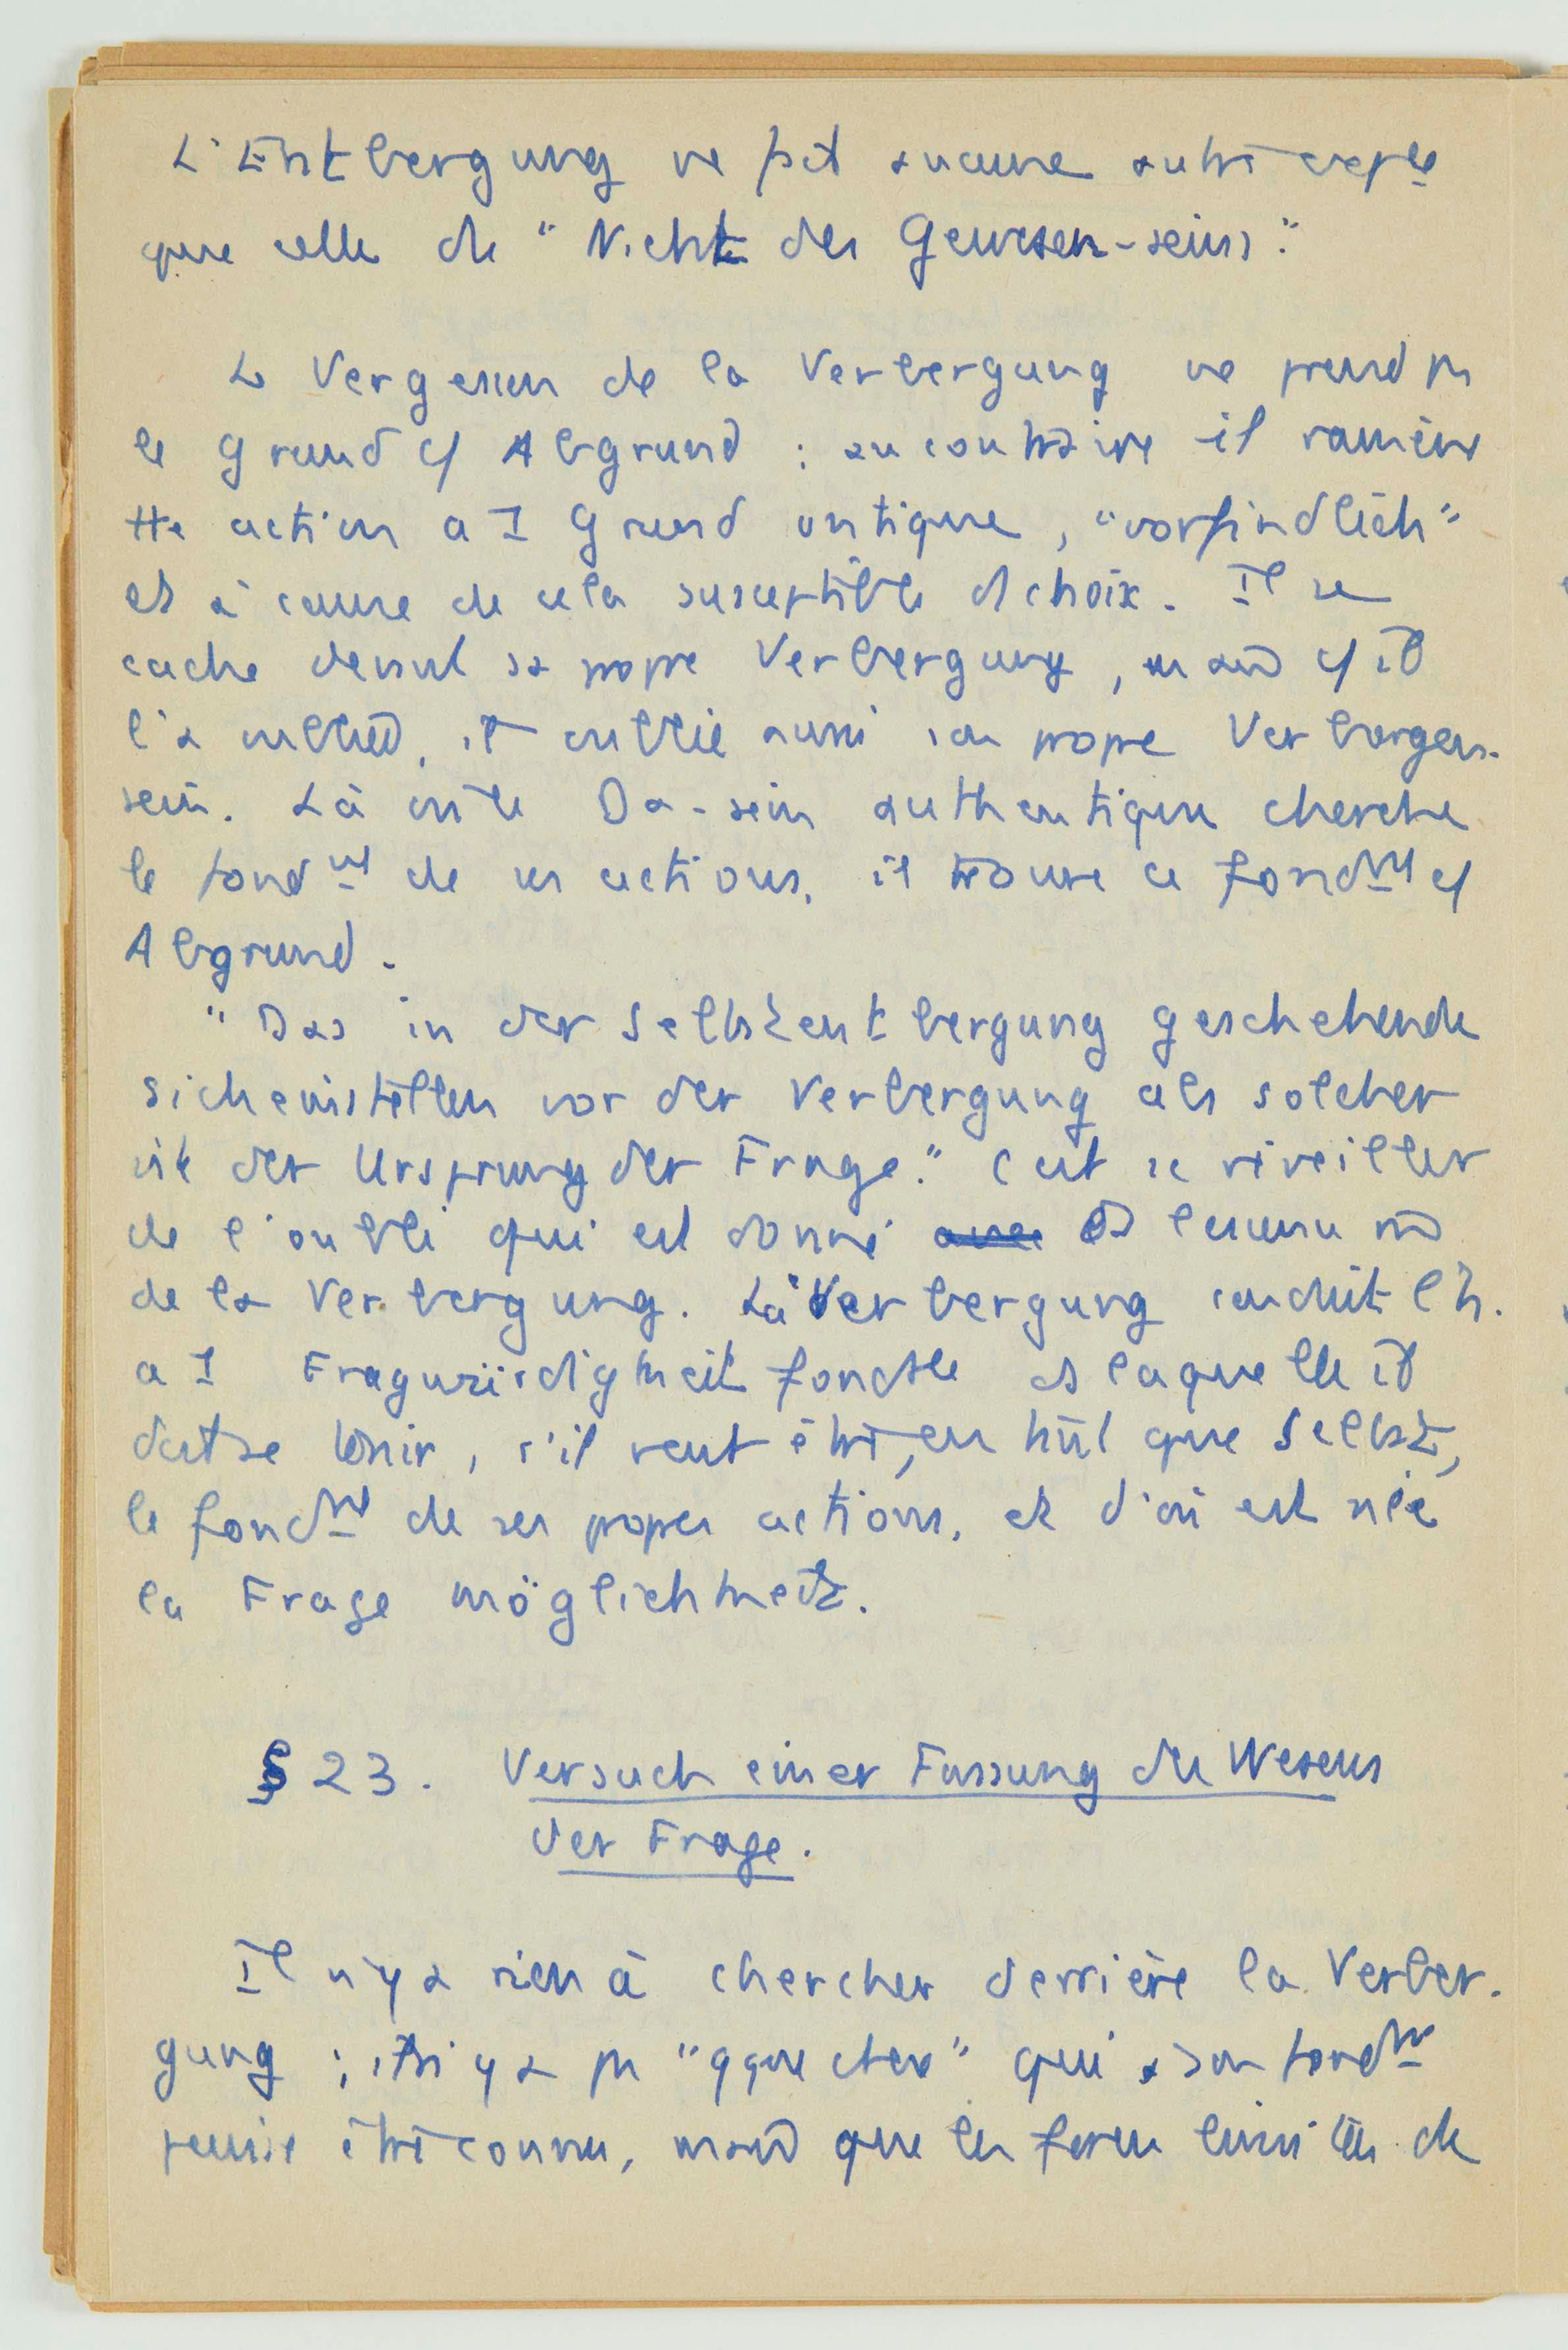 L'Entbergung ne fait aucune autre expce
que celle de "Nicht des Gewesen-seins".
Le Vergessen de la Verbergung ne prend pas
le Grund c/ Abgrund : au contraire il ramène
tte action a 1 Grund ontique, "vorfindlich"
et à cause de cela susceptible d choix. Il se
cache devant sa propre Verbergung, quand il
l'a oubliée, il oublie aussi son propre Verborgen-
sein. Là où le Da-sein authentique cherche
le fondmt de ses actions, il trouve ce fondmt c/
Abgrund.
"Das in der Selbstentbergung geschehende
Sicheinstellen vor der Verbergung als solcher
ist der Ursprung der Frage." C'est se réveiller
de l'oubli qui est donné
de la Verbergung. La Verbergung conduit l'h.
a 1 Fragwürdigkeit fondtle ds laquelle il
doit se tenir, s'il veut être, en tant que Selbst,
le fondmt de ses propres actions, et d'où est née
la Frage möglichkeit.
§ 23. Versuch einer Fassung des Wesens
der Frage.
Il n'y a rien à chercher derrière la Verber-
gung ; il n'y a pas "qque chose" qui a son fondmt
puisse être connu, que les limites de